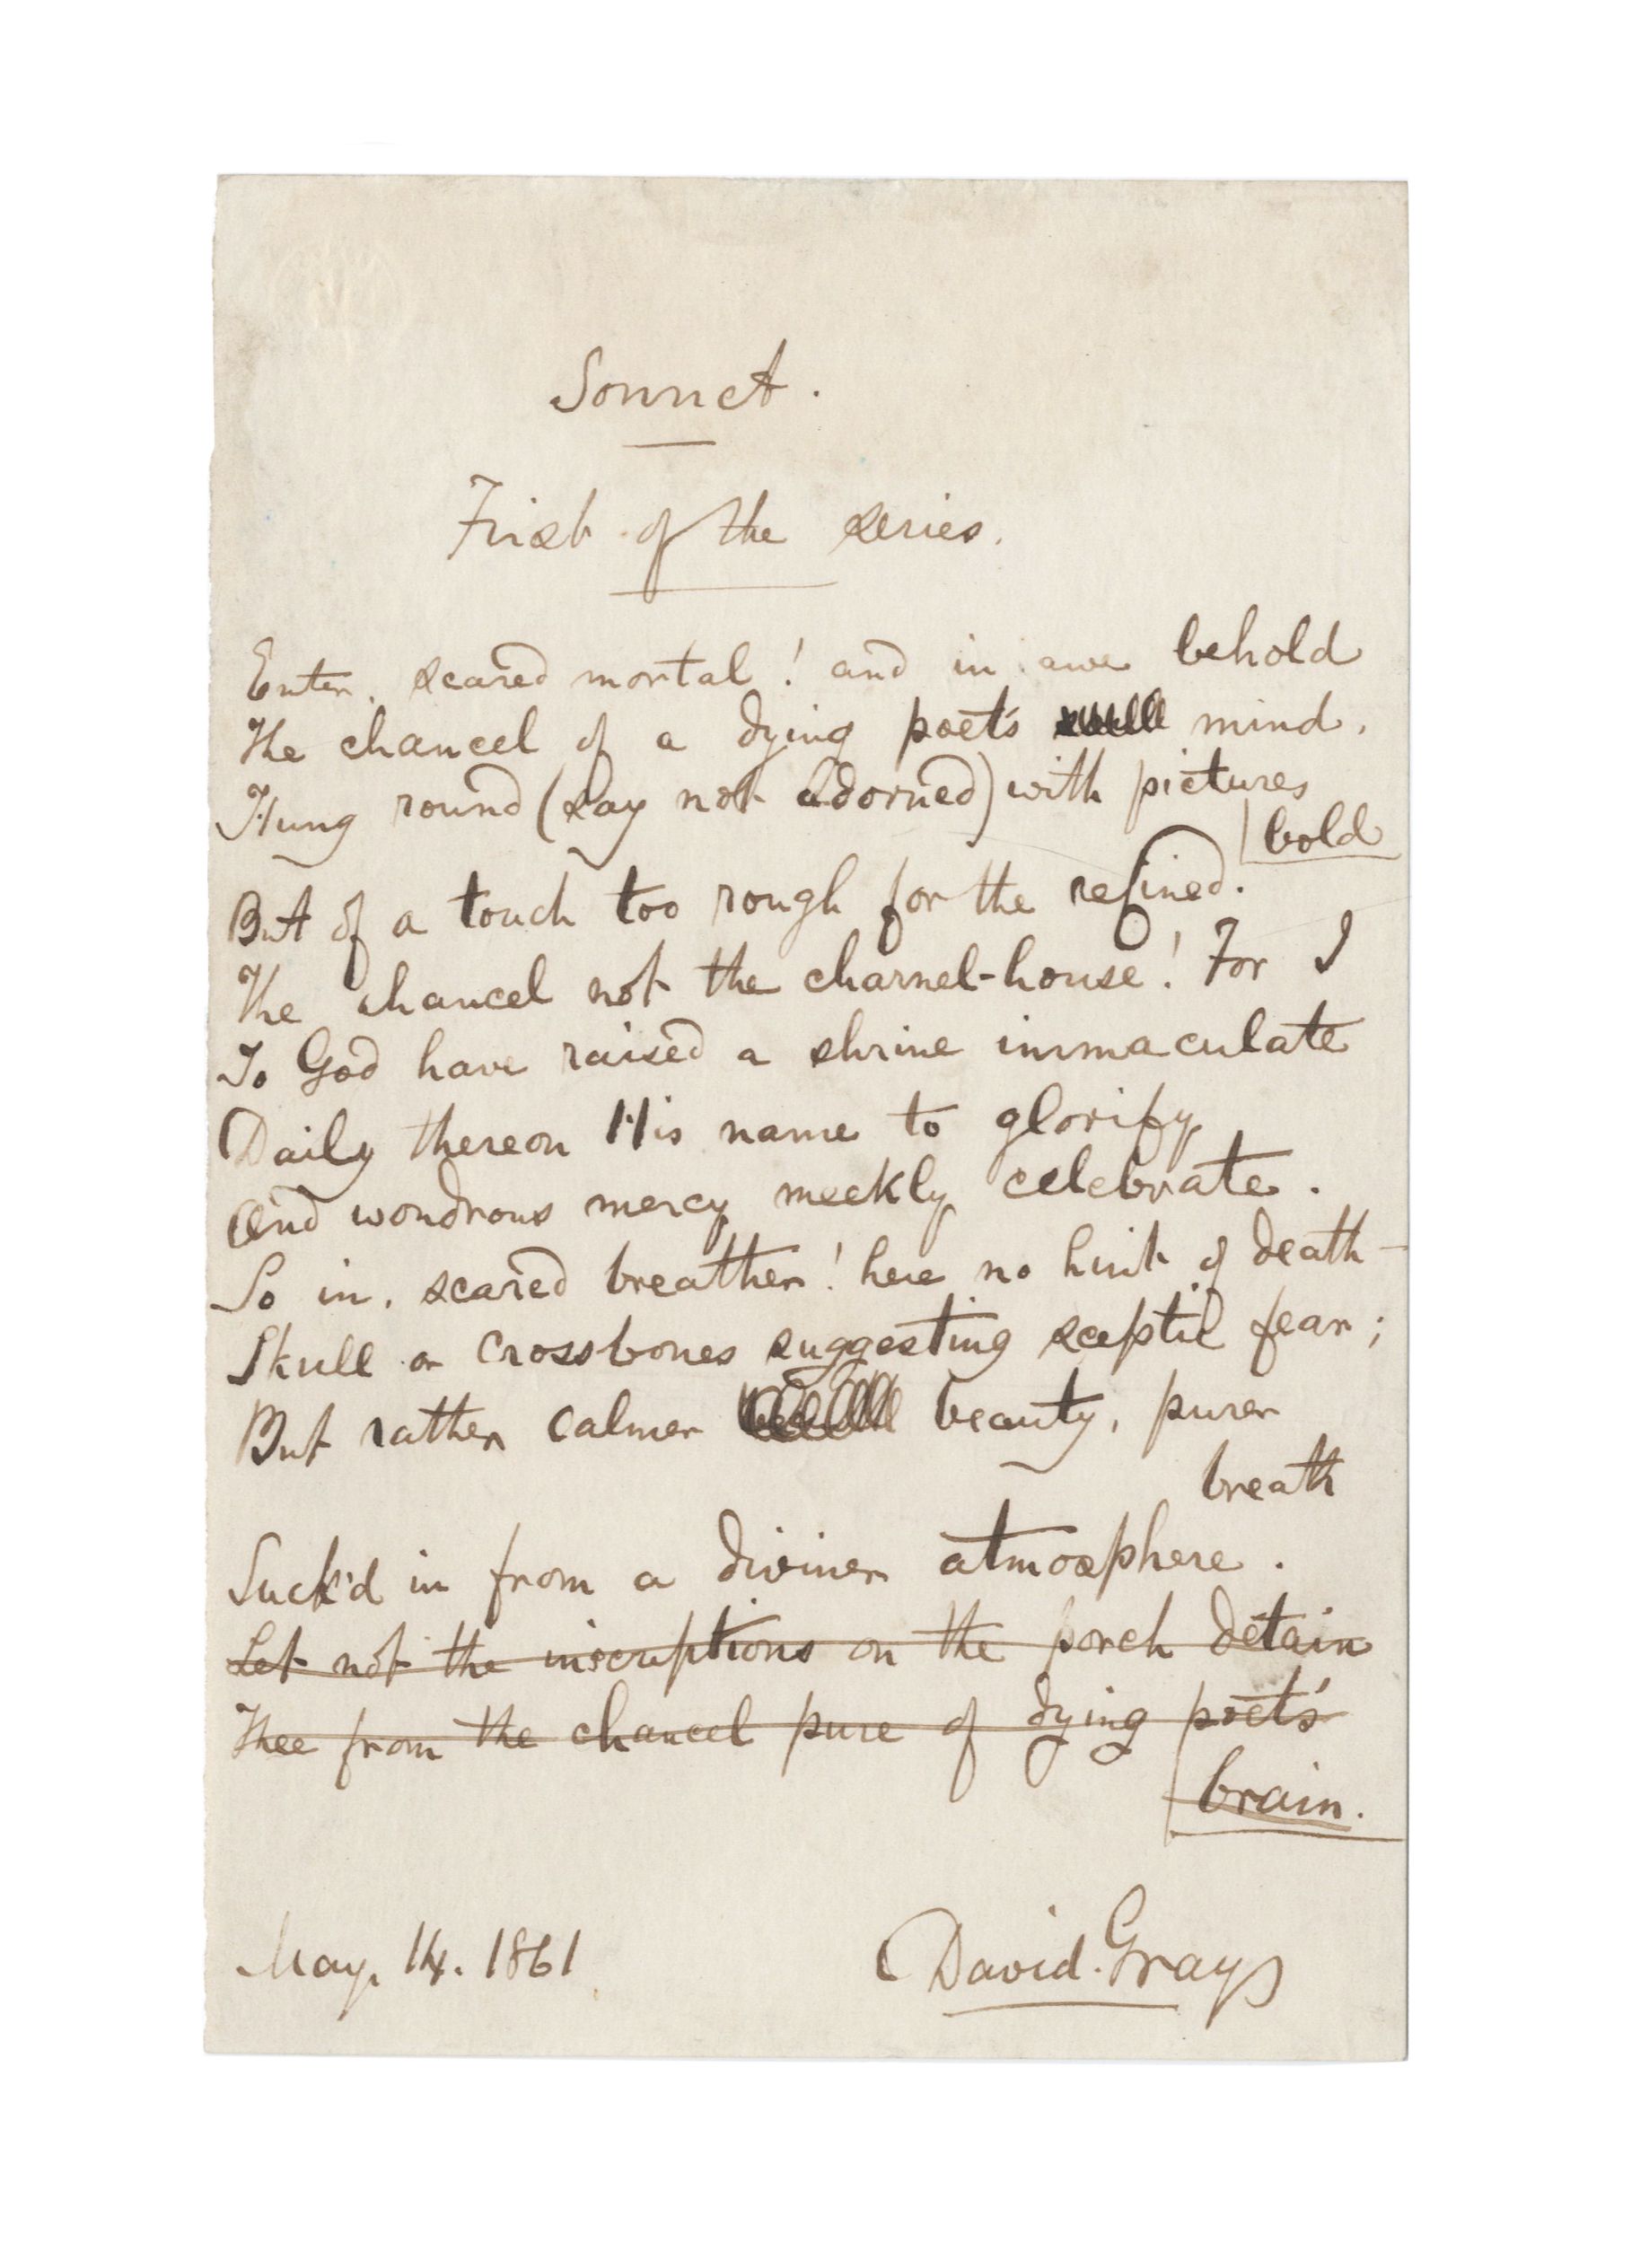 Sonnet.
First of the series.
Enter, scared mortal! and in awe behold
The chancel of a dying poet's mind,
Hung round (say not adorned) with pictures
bold
But of a touch too rough for the refined.
The chancel not the charnel-house! For I
To God have raised a shrine immaculate
Daily thereon His name to glorify
And wondrous mercy meekly celebrate.
So in, scared breather! here no hint of death —
Skull or crossbones suggesting sceptic fear;
But rather calmer beauty, purer
breath
Suck'd in from a diviner atmosphere.
Let not the inscriptions on the porch detain
Thee from the chancel pure of dying poet's
brain.
May. 14. 1861
David Gray